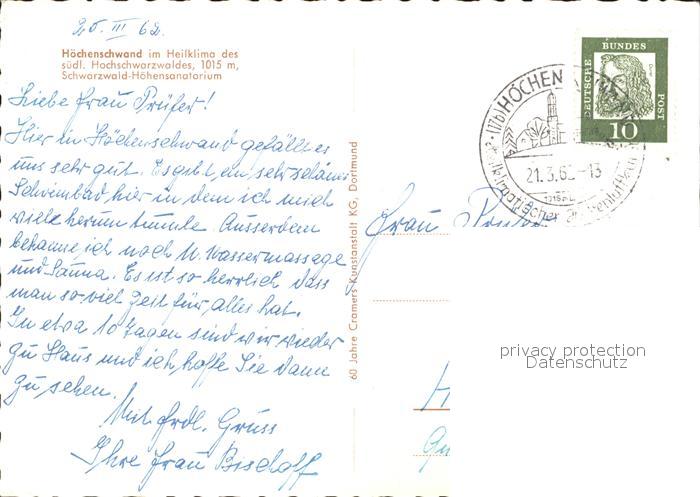 20. III 62.
Höchenschwand im Heilklima des
südl. Hochschwarzwaldes, 1015 m,
Schwarzwald-Höhensanatorium
Liebe Frau Prüfer!
Hier in Höchenschwand gefällt es
uns sehr gut. Es gibt ein sehr schönes
Schwimbad hier in dem ich mich
viele herum tumle. Ausserdem
bekomme ich noch U. Wassermassage
und Sauna. Es ist so herrlich dass
man so viel Zeit für alles hat.
In etwa 10 Tagen sind wir wieder
zu Haus und ich hoffe Sie dann
zu sehen.
Mit frdl. Gruss
Ihre Frau Bischoff
60 Jahre Cramers Kunstanstalt KG, Dortmund
(17b) HÖCHEN
21.3.62-13
DEUTSCHE
BUNDES
POST
10
Frau
privacy protection
Datenschutz